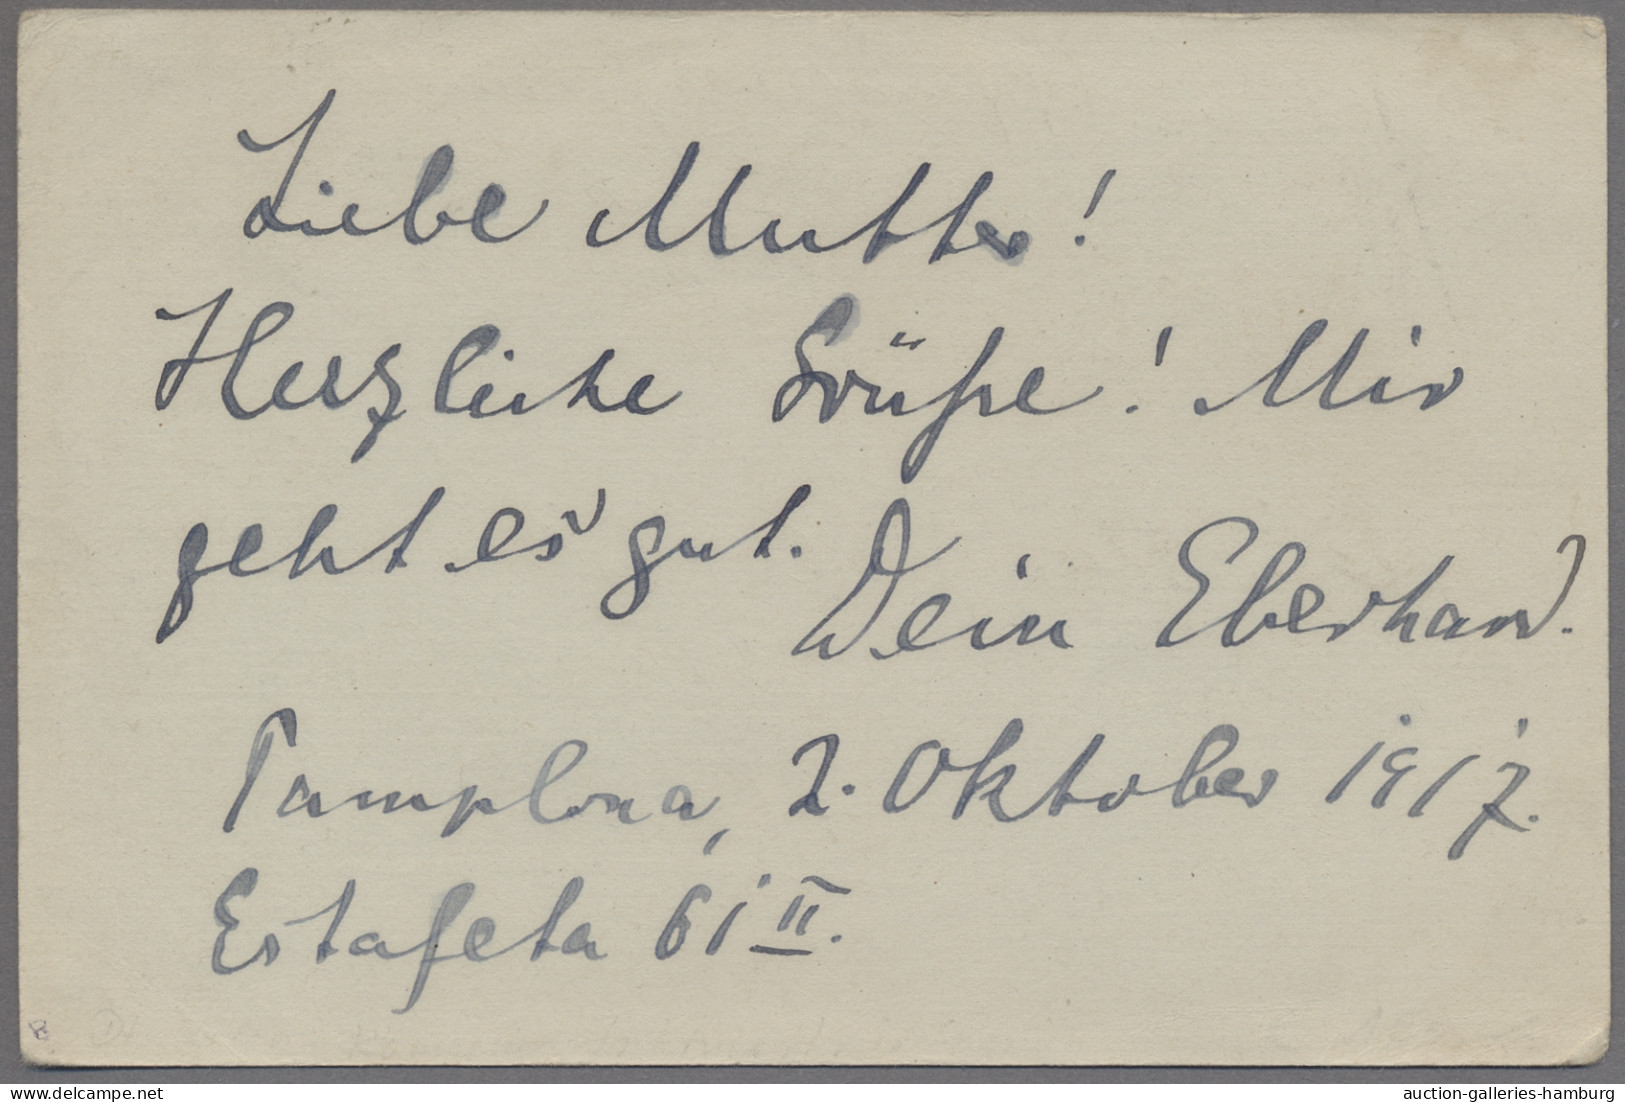 Liebe Mutter!
Herzliche Grüße! Mir
geht es gut. Dein Eberhard.
Pamplona, 2. Oktober 1917.
Estafeta 61 II.
B
www.delcampe.net
auction-galleries-hamburg